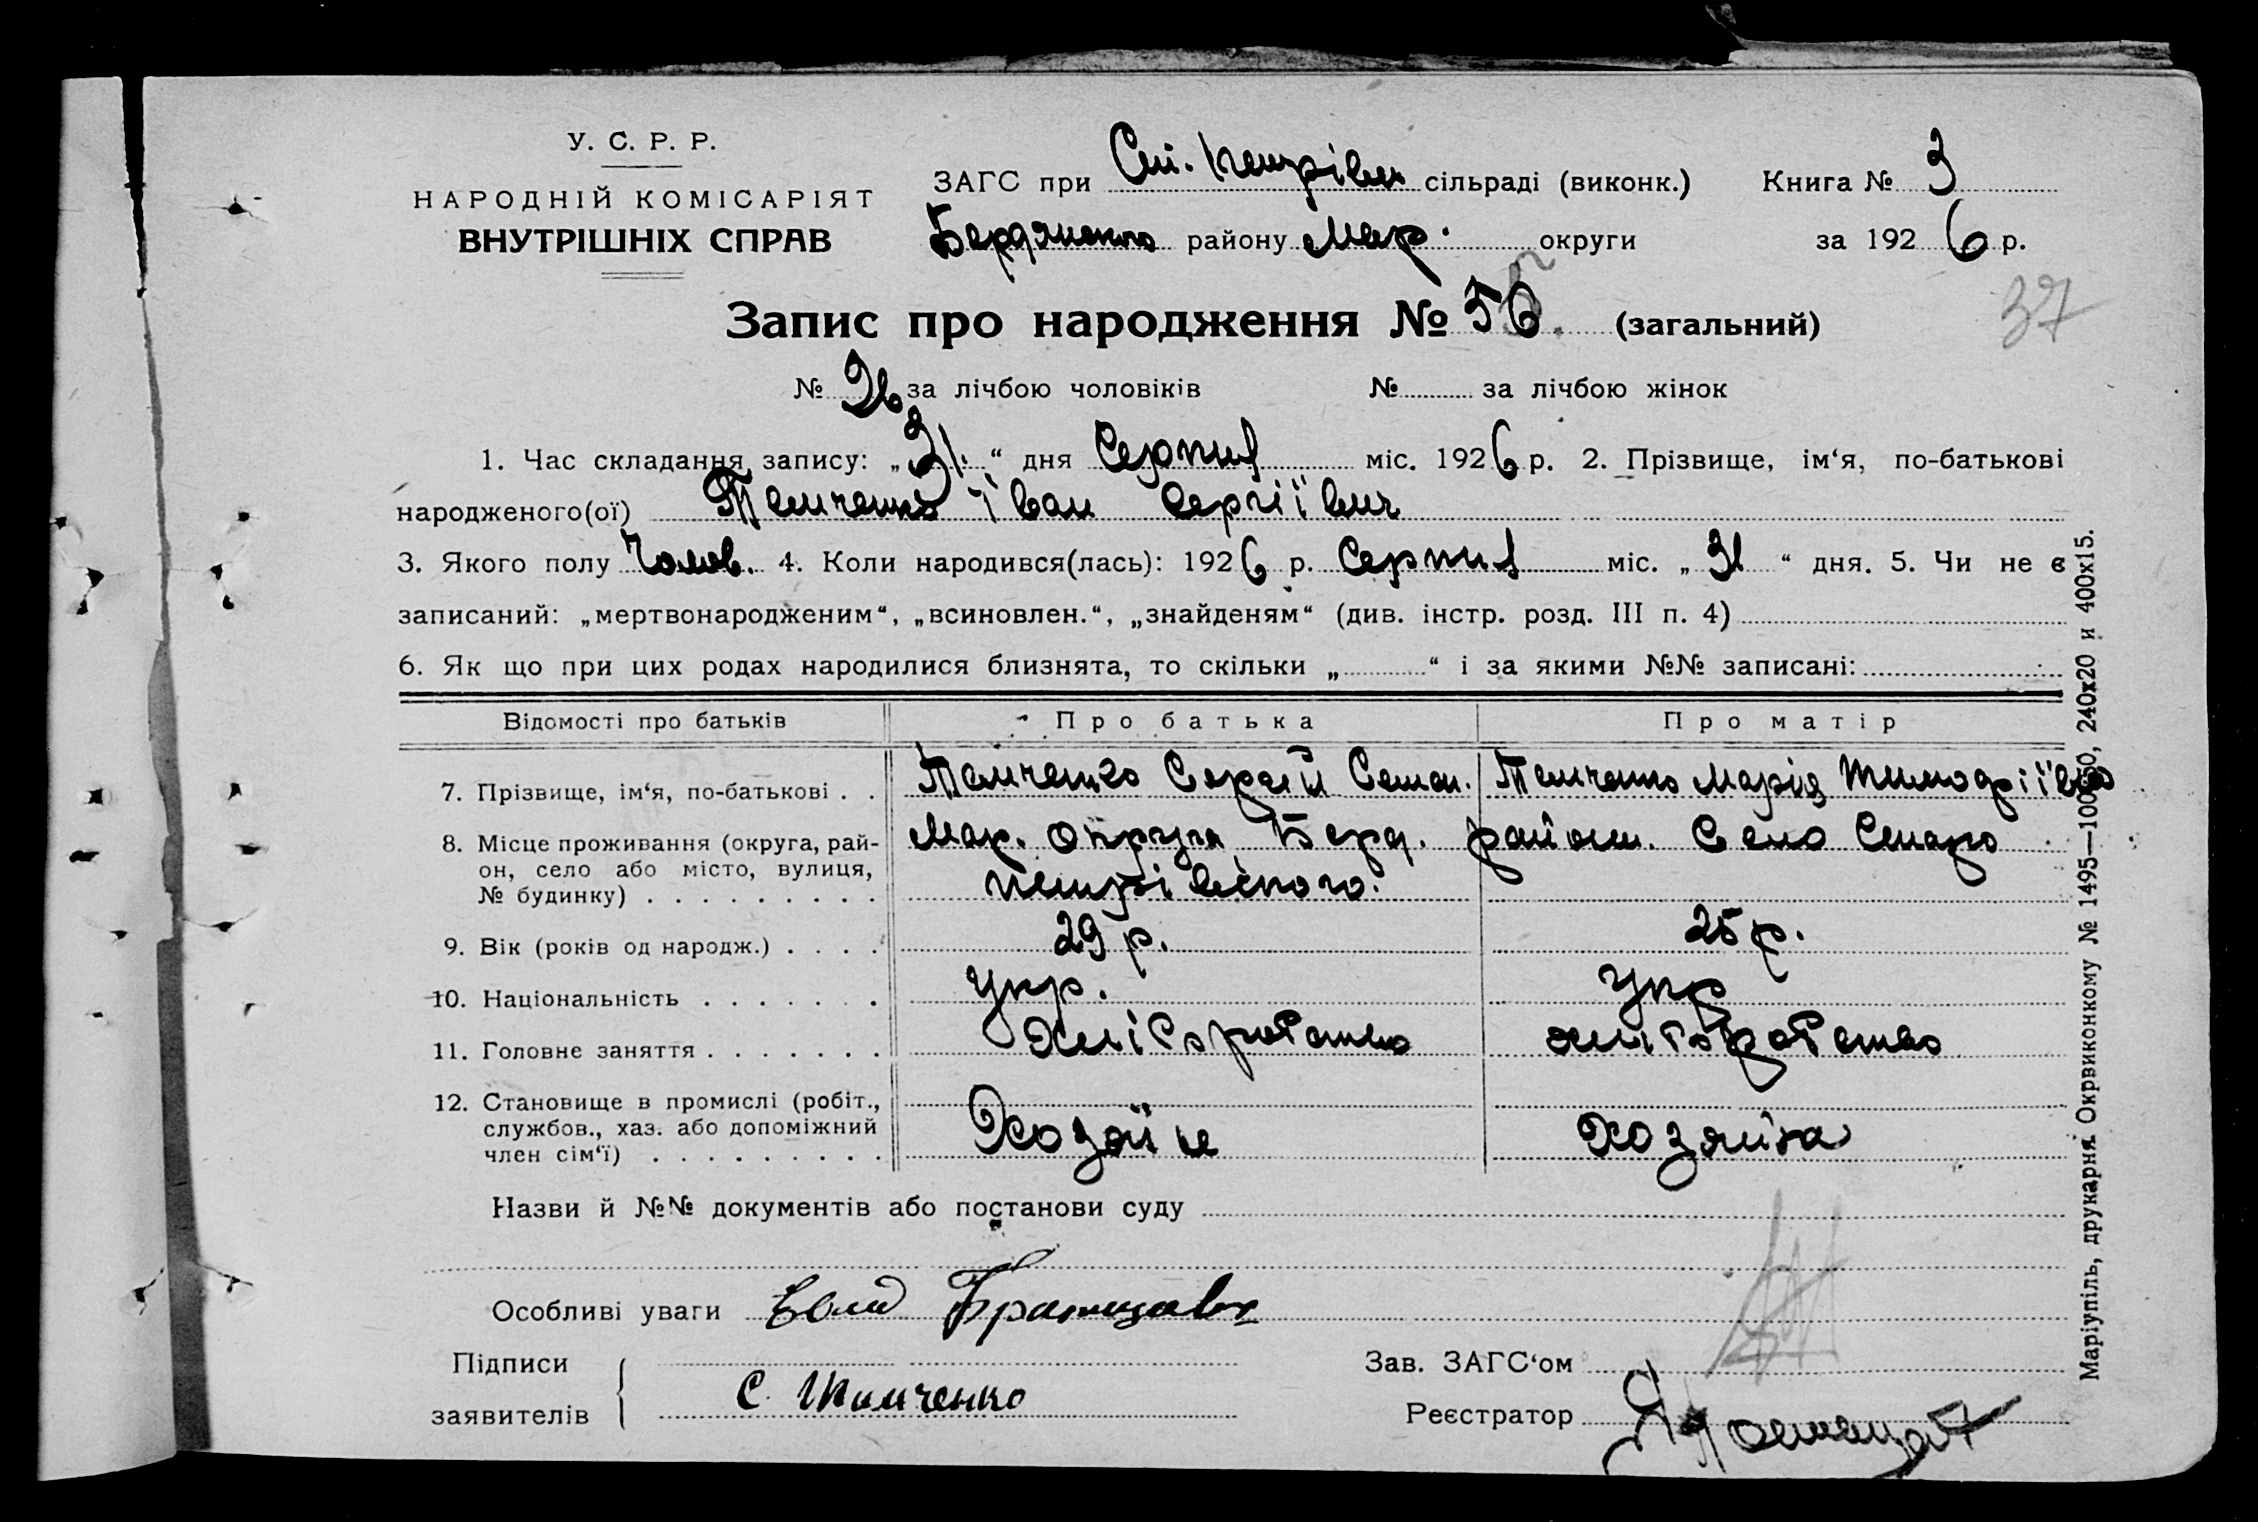 У. С. Р. Р.
НАРОДНІЙ КОМІСАРІЯТ
ВНУТРІШНІХ СПРАВ
ЗАГС при Ст. Петрівск сільраді (виконк.) Книга № 3
Бердянського району Мар. округи за 1926 р.
37
Запис про народження № 56 (загальний)
№ 26 за лічбою чоловіків № за лічбою жінок
1. Час складання запису: „31“ дня Серпня міс. 1926 р. 2. Прізвище, ім‘я, по-батькові
народженого(ої) Темченко Іван Сергіївич
3. Якого полу Чолов. 4. Коли народився(лась): 1926 р. Серпня міс. „31“ дня. 5. Чи не є
записаний: „мертвонародженим“, „всиновлен.“, „знайденям“ (див. інстр. розд. III п. 4)
6. Як що при цих родах народилися близнята, то скільки „ “ і за якими №№ записані:
Відомості про батьків Про батька Про матір
7. Прізвище, ім‘я, по-батькові . . Темченко Сергій Семен. Темченко Марія
8. Місце проживання (округа, рай- Мар. округа Берд. район. Село Старо
он, село або місто, вулиця, петрівського.
№ будинку) . . . . . . . . .
9. Вік (років од народж.) . . . . 29 р. 25 р.
10. Національність . . . . . . . Укр. Укр
11. Головне заняття . . . . . . . Хліборобство хліборобство
12. Становище в промислі (робіт.,
службов., хаз. або допоміжний Хозяїн хозяйка
член сім‘ї) . . . . . . . . .
Назви й №№ документів або постанови суду
Особливі уваги
Підписи Зав. ЗАГС‘ом
заявителів С. Тимченко Реєстратор
Маріупіль, друкарня Окрвиконкому № 1495—100 50, 240х20 и 400х15.